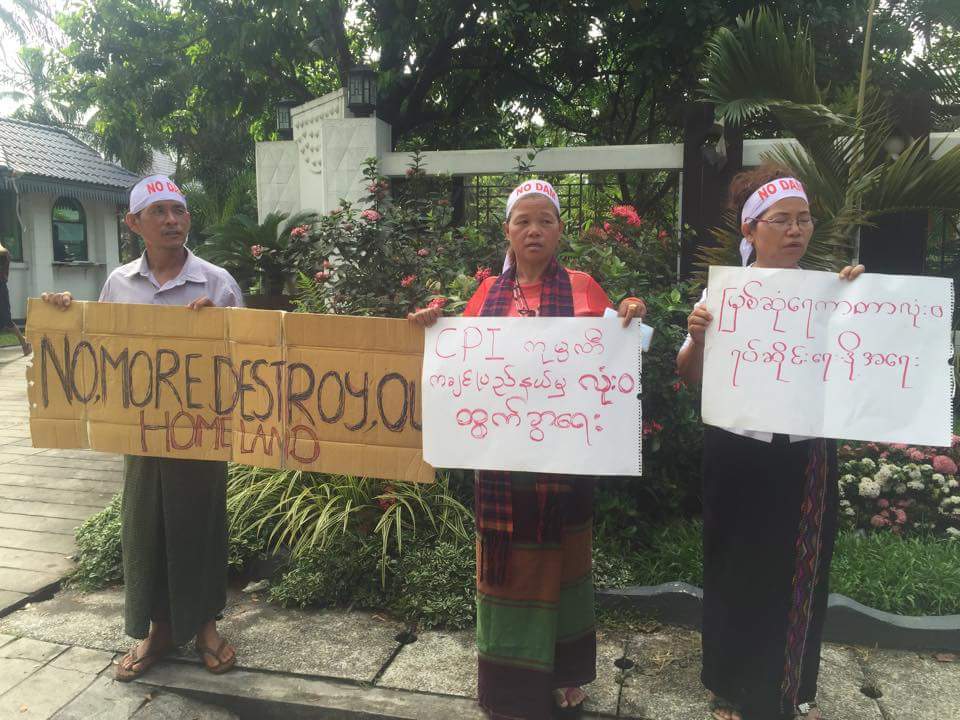 NO DAM
NO DAM
NO DAM
NO.MORE DESTROY.OU
HOMELAND
CPI ကုမ္ပဏီ
ကချင်ပြည်နယ်မှ လုံးဝ
ထွက်ခွာရေး
မြစ်ဆုံရေကာတာလုံးဝ
ရပ်ဆိုင်းရေး ဒို့အရေး